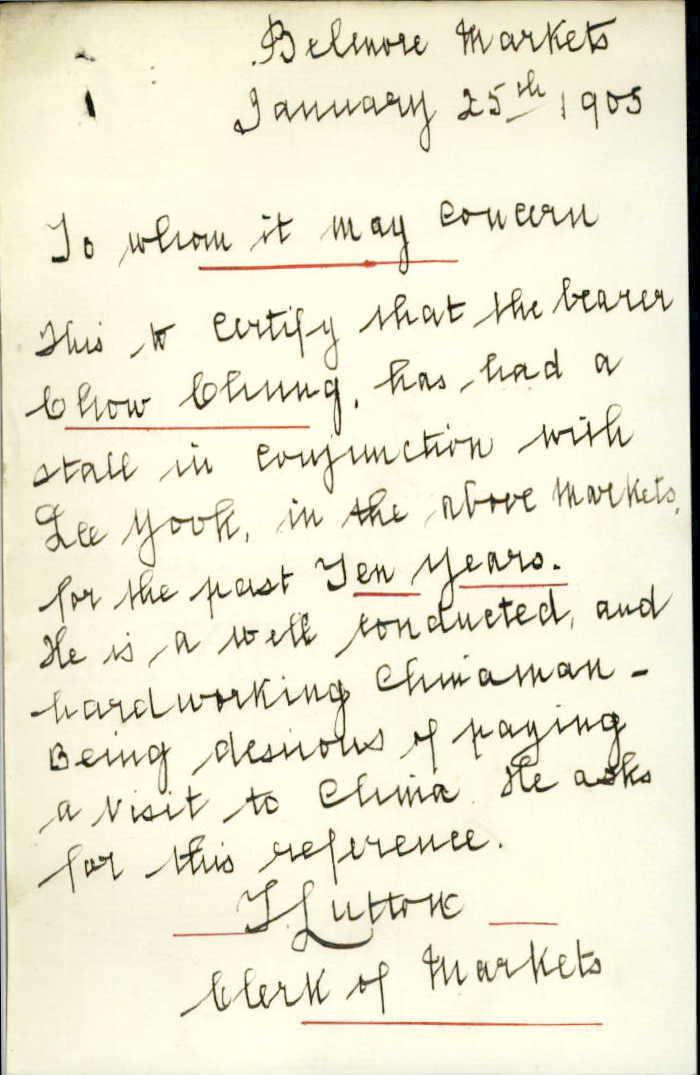 Belmore Markets
January 25th 1905
To whom it may concern
This to Certify that the bearer
Chow Chung, has had a
stall in conjunction with
Lee Yook, in the above Markets,
for the past Ten Years.
He is a well conducted, and
hardworking Chinaman -
Being desirous of paying
a Visit to China He asks
for this reference.
T
Clerk of Markets